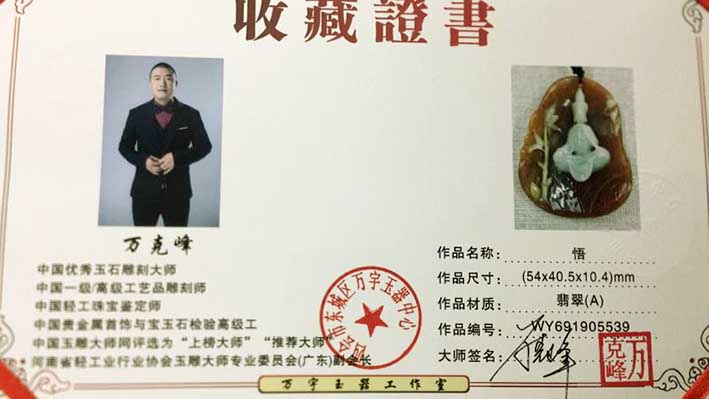 收藏證書
万克峰
中国优秀玉石雕刻大师
中国一级/高级工艺品雕刻师
中国轻工珠宝鉴定师
中国贵金属首饰与宝玉石检验高级工
中国玉雕大师网评选为“上榜大师”“推荐大师”
河南省轻工业行业协会玉雕大师专业委员会(广东)副会长
会市东城区万宇玉器中心
作品名称: 悟
作品尺寸: (54x40.5x10.4)mm
作品材质: 翡翠(A)
作品编号: WY691905539
大师签名: 万克峰
万克峰
万宇玉器工作室